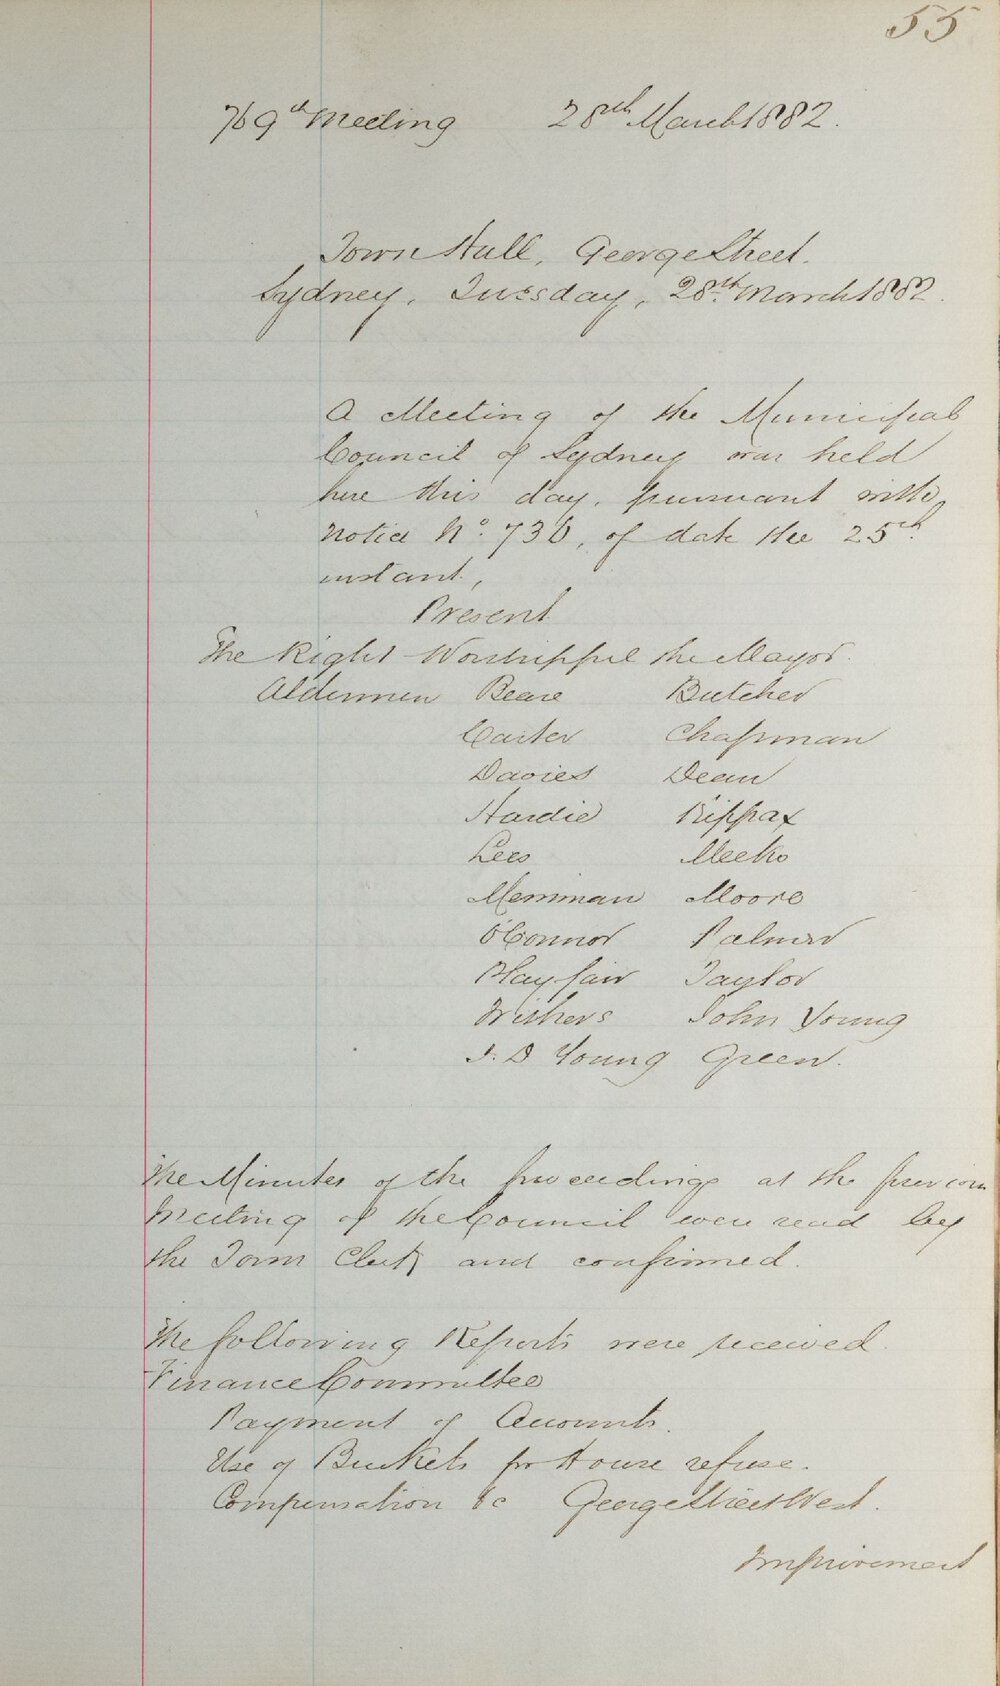 55
769th Meeting 28th March 1882.
Town Hall, George Street.
Sydney, Tuesday, 28th March 1882.
A Meeting of the Municipal
Council of Sydney was held
here this day, pursuant with
Notice No. 736, of date the 25th
instant,
Present
The Right Worshipful the Mayor.
Aldermen Beare Butcher
Carter Chapman
Davies Dean
Hardie Kippax
Lees Meeks
Merriman Moore
O'Connor Palmer
Playfair Taylor
Withers John Young
J. D Young Green.
The Minutes of the proceedings at the previous
Meeting of the Council were read by
the Town Clerk and confirmed.
The following Reports were received.
Finance Committee
Payment of Accounts.
Use of Buckets for House refuse.
Compensation &c George Street West.
Improvement